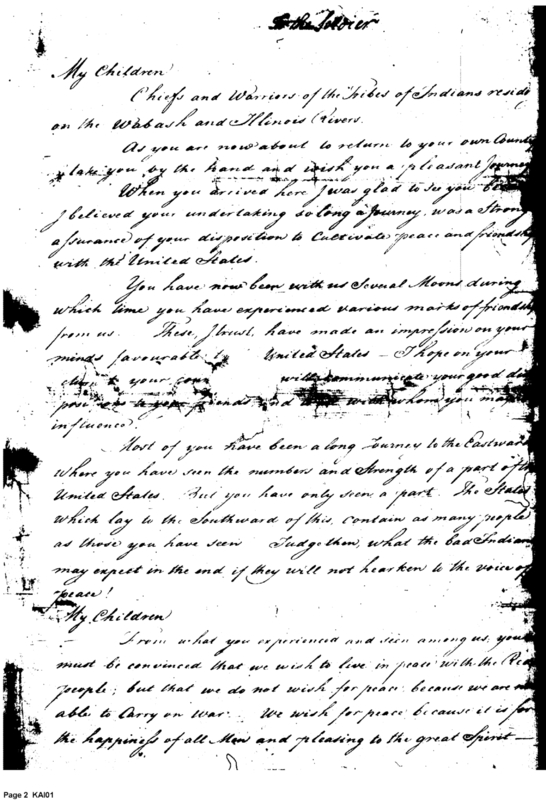 to the Soldier
My Children
Chiefs and Warriors of the Tribes of Indians reside
on the Wabash and Illinois Rivers.
As you are now about to return to your own Country
I take you by the hand and wish you a pleasant Journey
When you arrived here I was glad to see you
I believed your undertaking so long a Journey, was a Strong
assurance of your disposition to Cultivate peace and friendship
with the United States.
You have now been with us Several Moons during
which time you have experienced various marks of friendship
from us. These, I trust, have made an impression on your
minds favourable to United States — I hope on your
to your will communicate your good dis
to your friends and with whom you may
influence
Most of you have been a long Journey to the Eastward
where you have seen the numbers and Strength of a part of the
United States. But you have only seen a part. The States
which lay to the Southward of this, contain as many people
as those you have seen Judge then, what the bad Indians
may expect in the end if they will not hearken to the voice of
peace!
My Children
From what you experienced and seen among us, you
must be convinced that we wish to live in peace with the Red
people; but that we do not wish for peace because we are not
able to Carry on war. We wish for peace because it is for
the happiness of all Men and pleasing to the great Spirit —
Page 2 KAI01